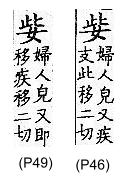 姕
婦人皃又疾
支此移二切
(P46)
姕
婦人皃又即
移疾移二切
(P49)